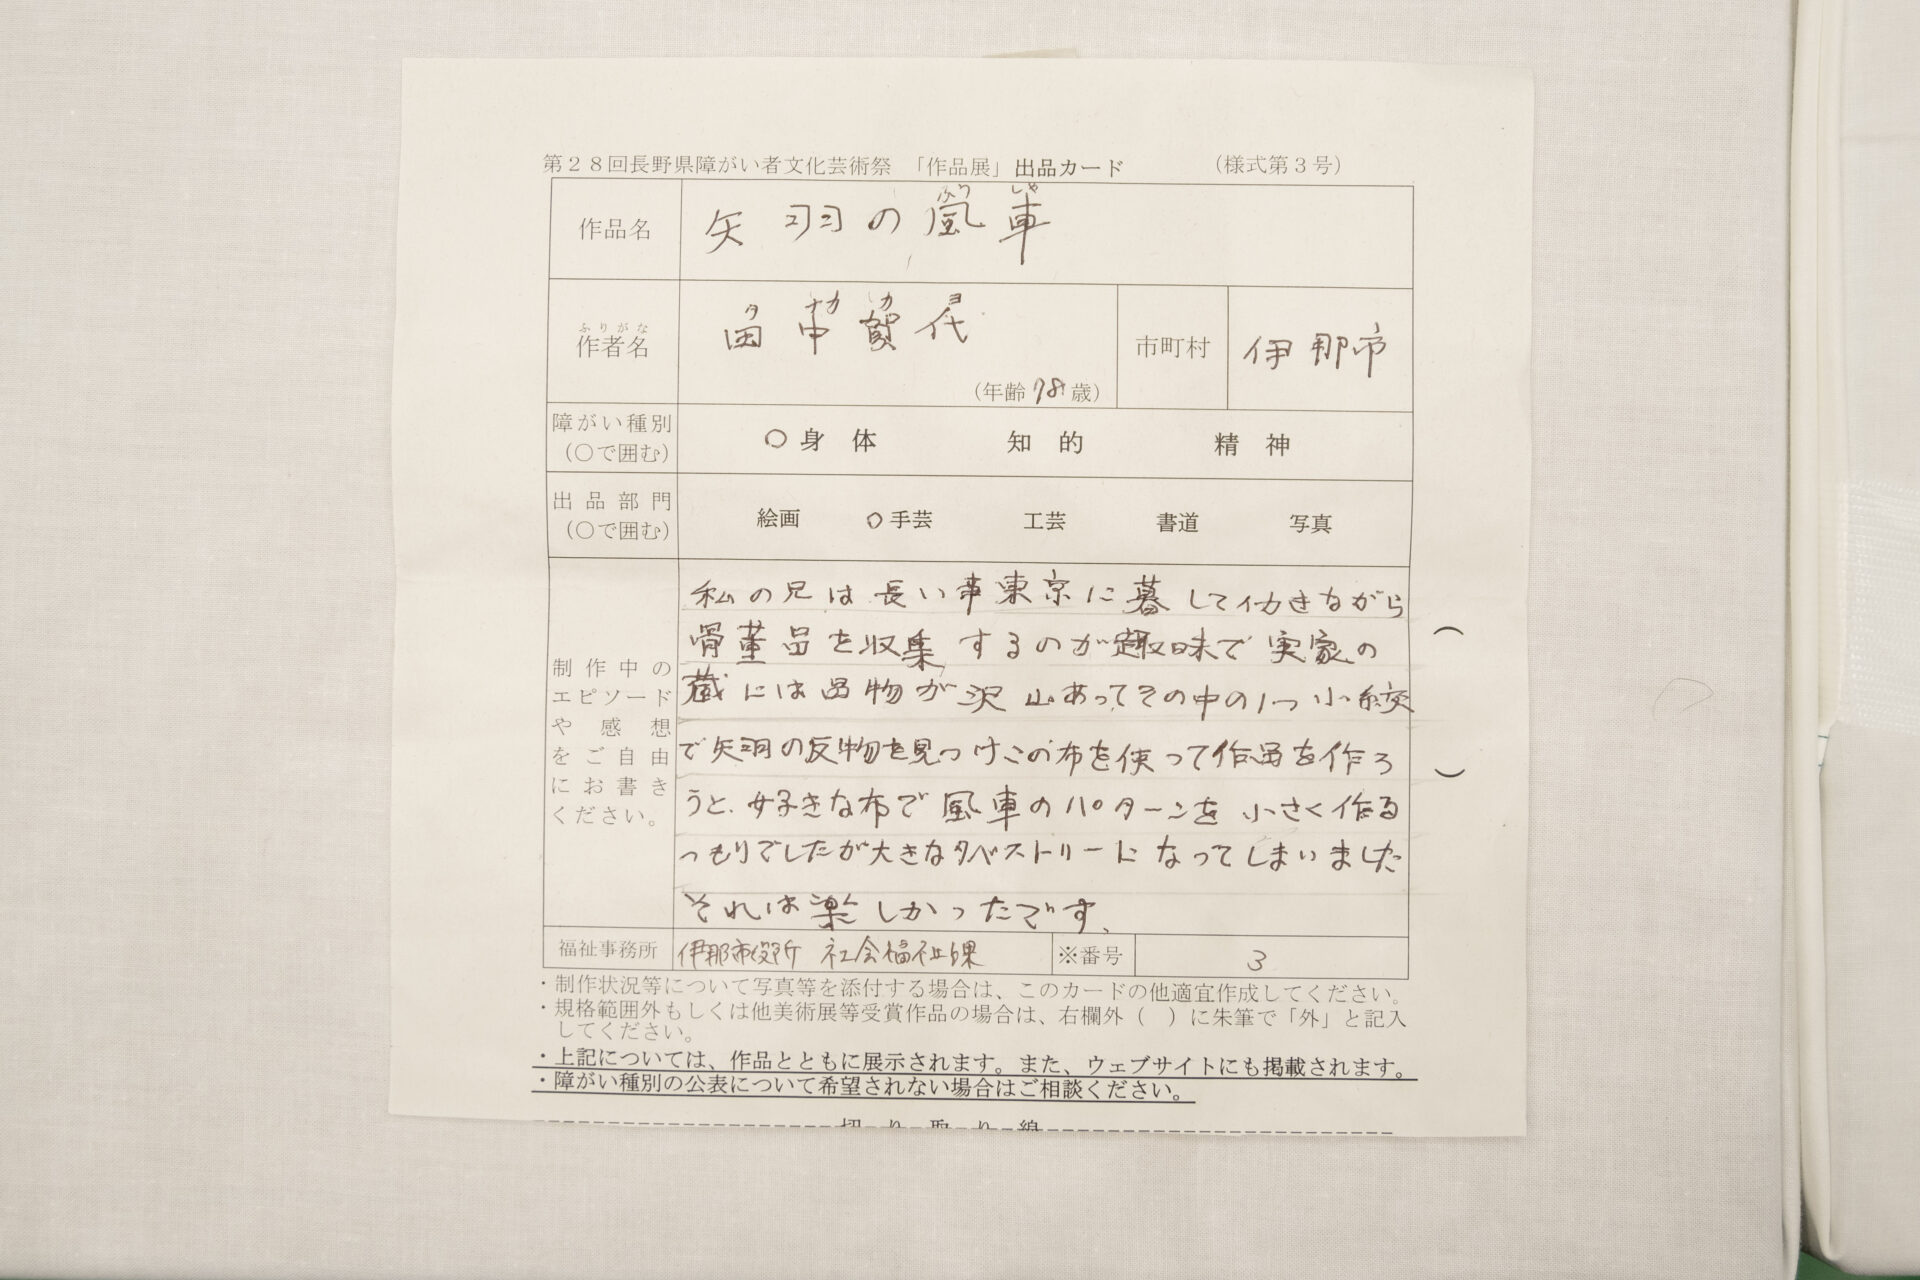 第28回長野県障がい者文化芸術祭 「作品展」出品カード (様式第3号)
作品名
ふう しゃ
矢羽の風車
ふりがな
作者名
タ ナカ カ ヨ
田中賀代
(年齢 78 歳)
市町村
伊那市
障がい種別
(○で囲む)
○身体 知的 精神
出品部門
(○で囲む)
絵画 ○手芸 工芸 書道 写真
制作中の
エピソード
や感想
をご自由
にお書き
ください。
私の兄は長い事東京に暮して働きながら
骨董品を収集するのが趣味で実家の
蔵には品物が沢山あってその中の1つ小紋
で矢羽の反物を見つけこの布を使って作品を作ろ
うと、好きな布で風車のパターンを小さく作る
つもりでしたが大きなタペストリーになってしまいました
それは楽しかったです、
福祉事務所
伊那市役所 社会福祉課
※番号
3
・制作状況等について写真等を添付する場合は、このカードの他適宜作成してください。
・規格範囲外もしくは他美術展等受賞作品の場合は、右欄外( )に朱筆で「外」と記入
してください。
・上記については、作品とともに展示されます。また、ウェブサイトにも掲載されます。
・障がい種別の公表について希望されない場合はご相談ください。
切り取り線